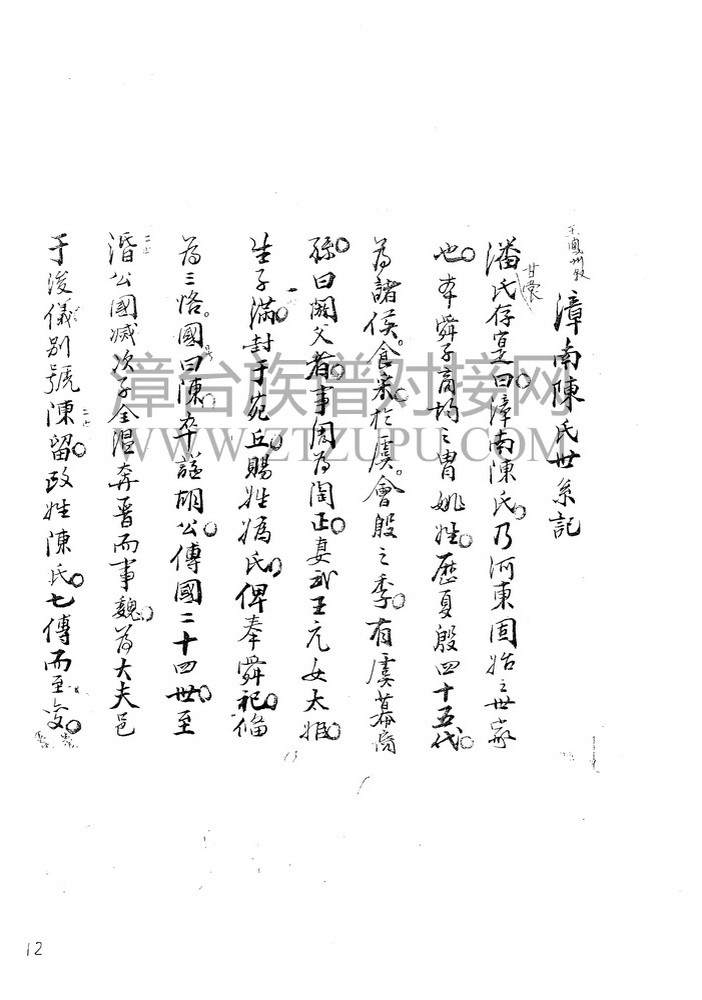 漳南陳氏世系記
甘棠
潘氏存寔曰漳南陳氏乃河東固始之世家
也本舜子商均之胄姚姓歷夏殷四十五代
為諸侯食采於虞會殷之季有虞幕裔
孫曰閼父者事周為陶正妻武王元女太姬
生子滿封于宛丘賜姓媯氏俾奉舜祀俻
為三恪國曰陳卒謚胡公傳國二十四世至
湣公國滅次子全溫奔晋而事魏為大夫邑
于浚儀別號陳留改姓陳氏七傳而至
漳台族谱对接网
WWW.ZTZUPU.COM
12